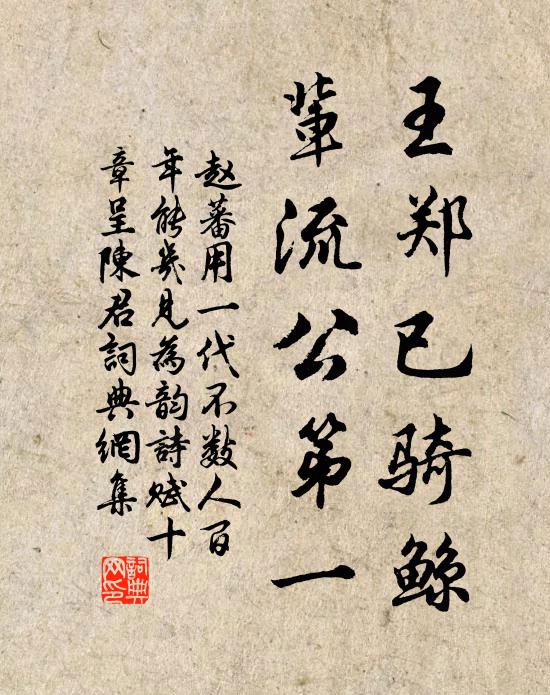 王郑已骑鲸
辈流公第一
赵蕃用一代不数人百
年能几见为韵诗赋十
章呈陈君词典网集
詞典
网印